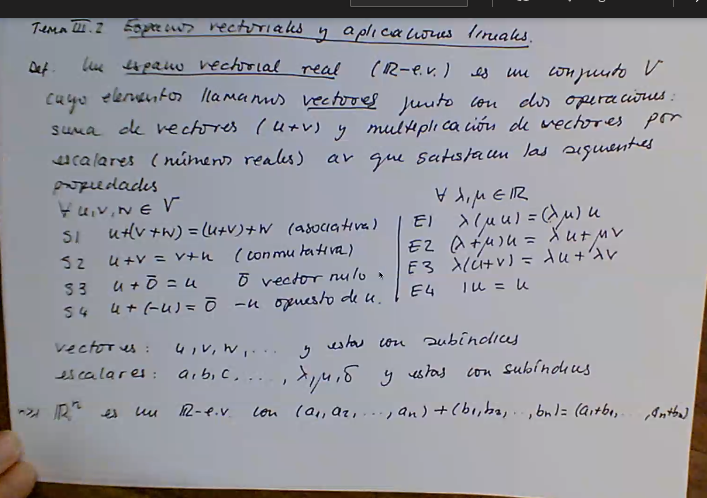 Tema III.2 Espacios vectoriales y aplicaciones lineales.
Def. Un espacio vectorial real (R-e.v.) es un conjunto V
cuyo elementos llamamos vectores junto con dos operaciones:
suma de vectores (u+v) y multiplicación de vectores por
escalares (números reales) av que satisfacen las siguientes
propiedades
∀ u,v,w ∈ V
S1 u+(v+w)=(u+v)+w (asociativa)
S2 u+v = v+u (conmutativa)
S3 u+0̄ = u 0̄ vector nulo
S4 u+(-u)= 0̄ -u opuesto de u.
∀ λ,μ ∈ ℝ
E1 λ(μu)=(λμ)u
E2 (λ+μ)u = λu+μv
E3 λ(u+v) = λu+λv
E4 1u = u
vectores: u,v,w,... y estas con subíndices
escalares: a,b,c...., λ,μ,δ y estas con subíndices
ℝⁿ es un ℝ-e.v. con (a₁,a₂,...,aₙ)+(b₁,b₂,..,bₙ)=(a₁+b₁,...,aₙ+bₙ)